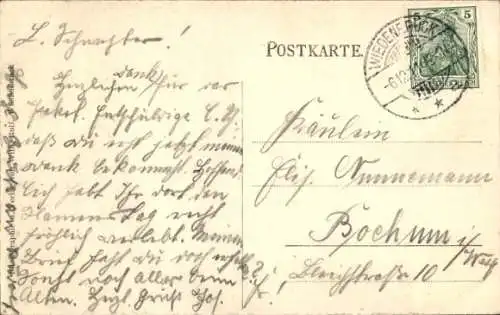 L. Schwester!
Herzlichen dank für das
Paket. Entschuldige l. S.
daß du erst jetzt meinen
dank bekommst. Hoffent
lich habt Ihr dort den
Namenstag recht
fröhlich verlebt. Meinen
Brief hast du doch erhalten?
Sonst noch alles beim
Alten. Herzl. Gruß Jos.
POSTKARTE.
WIEDENBRÜCK
5
Fräulein
Elis. Nunnemann
Bochum i/Westf
Bleichstraße 10